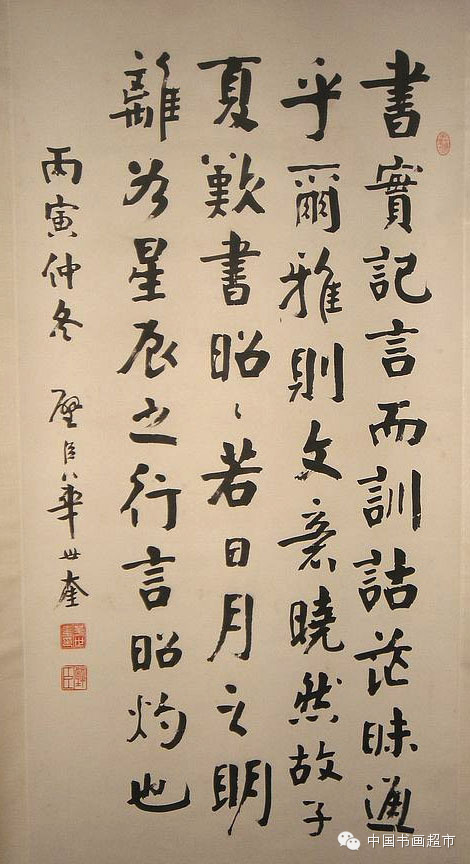 書實記言而訓詁茫昧通
乎爾雅則文意曉然故子
夏歎書昭〻若日月之明
離為星辰之行言昭灼也
丙寅仲冬 璧臣華世奎
中国书画超市